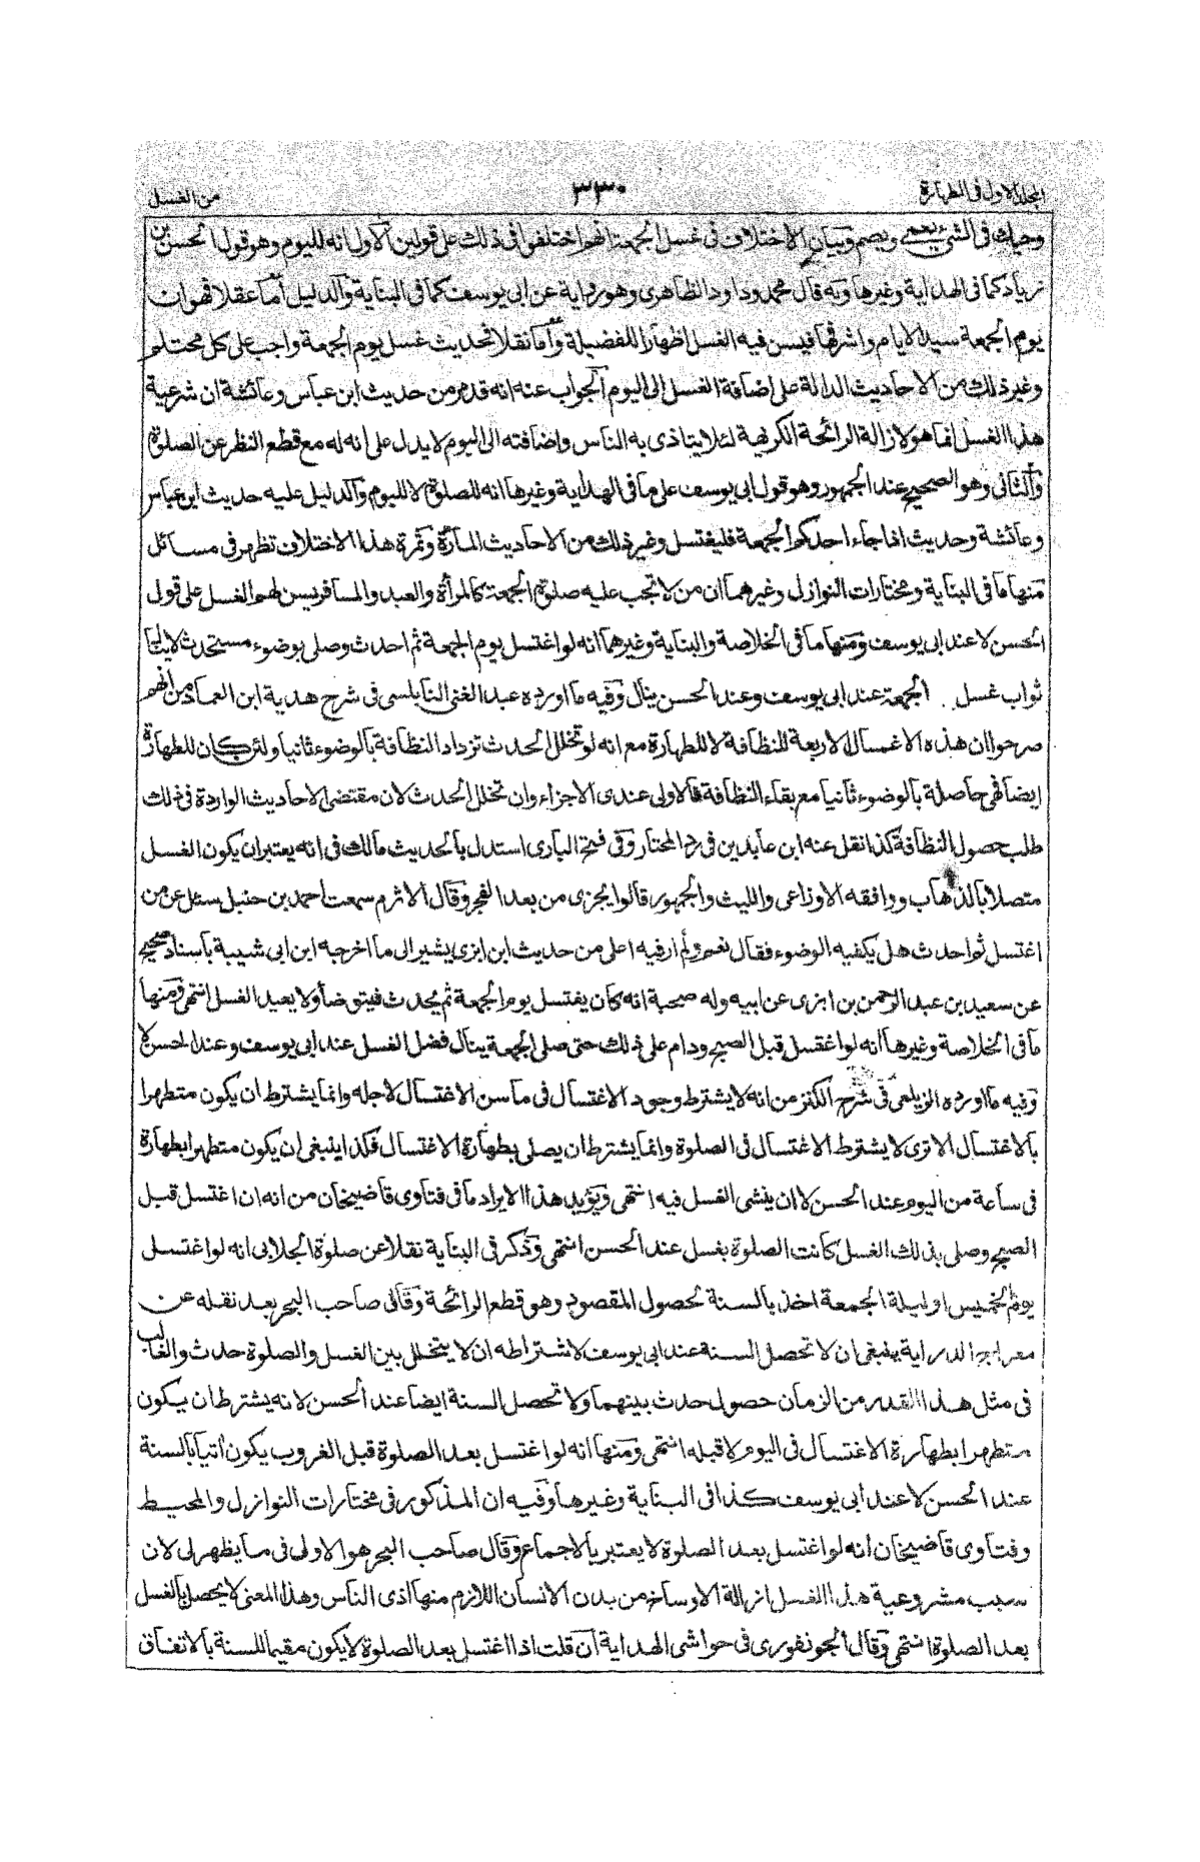 المجلد الاول فى الطهارة
٣٣٠
من الغسل
وحبك فى الشئ يعمى ويصم وبيان الاختلاف فى غسل الجمعة انهم اختلفوا فى ذلك على قولين الاول انه لليوم وهو قول الحسن بن
زياد كما فى الهداية وغيرها وبه قال محمد وداود الظاهرى وهو رواية عن ابى يوسف كما فى البناية والدليل أما عقلا فهو ان
يوم الجمعة سيد الايام واشرفها فيسن فيه الغسل اظهارا للفضيلة وأما نقلا فحديث غسل يوم الجمعة واجب على كل محتلم
وغير ذلك من الاحاديث الدالة على اضافة الغسل الى اليوم الجواب عنه انه قد مر من حديث ابن عباس وعائشة ان شرعية
هذا الغسل انما هو لازالة الرائحة الكريهة لئلا يتاذى به الناس واضافته الى اليوم لا يدل على انه له مع قطع النظر عن الصلوة
والثانى وهو الصحيح عند الجمهور وهو قول ابى يوسف على ما فى الهداية وغيرها انه للصلوة لا لليوم والدليل عليه حديث ابن عباس
وعائشة وحديث اذا جاء احدكم الجمعة فليغتسل وغير ذلك من الاحاديث المارة وثمرة هذا الاختلاف تظهر فى مسائل
منها ما فى البناية ومختارات النوازل وغيرهما ان من لا تجب عليه صلوة الجمعة كالمرأة والعبد والمسافر يسن لهم الغسل على قول
الحسن لا عند ابى يوسف ومنها ما فى الخلاصة والبناية وغيرهما انه لو اغتسل يوم الجمعة ثم احدث وصلى بوضوء مستحدث لا ينال
ثواب غسل الجمعة عند ابى يوسف وعند الحسن ينال وفيه ما اورده عبد الغنى النابلسى فى شرح هدية ابن العماد من انهم
صرحوا ان هذه الاغسال الاربعة للنظافة لا للطهارة مع انه لو تخلل الحدث تزداد النظافة بالوضوء ثانيا ولئن كان للطهارة
ايضا فهى حاصلة بالوضوء ثانيا مع بقاء النظافة فالاولى عندى الاجزاء وان تخلل الحدث لان مقتضى الاحاديث الواردة فى ذلك
طلب حصول النظافة كذا نقل عنه ابن عابدين فى رد المحتار وفى فتح البارى استدل بالحديث مالك فى انه يعتبر ان يكون الغسل
متصلا بالذهاب ووافقه الاوزاعى والليث والجمهور قالوا يجزى من بعد الفجر وقال الاثرم سمعت احمد بن حنبل سئل عن من
اغتسل ثم احدث هل يكفيه الوضوء فقال نعم ولم ار فيه اعلى من حديث ابن ابزى يشير الى ما اخرجه ابن ابى شيبة باسناد صحيح
عن سعيد بن عبد الرحمن بن ابزى عن ابيه وله صحبة انه كان يغتسل يوم الجمعة ثم يحدث فيتوضأ ولا يعيد الغسل انتهى ومنها
ما فى الخلاصة وغيرها أنه لو اغتسل قبل الصبح ودام على ذلك حتى صلى الجمعة ينال فضل الغسل عند ابى يوسف وعند الحسن لا
وفيه ما اورده الزيلعى فى شرح الكنز من انه لا يشترط وجود الاغتسال فى ما سن الاغتسال لاجله وانما يشترط ان يكون متطهرا
بالاغتسال الا ترى لا يشترط الاغتسال فى الصلوة وانما يشترط ان يصلى بطهارة الاغتسال فكذا ينبغى ان يكون متطهرا بطهارة
فى ساعة من اليوم عند الحسن لا ان ينشى الغسل فيه انتهى ويؤيد هذا الايراد ما فى فتاوى قاضيخان من انه ان اغتسل قبل
الصبح وصلى بذلك الغسل كانت الصلوة بغسل عند الحسن انتهى وذكر فى البناية نقلا عن صلوة الجلابى انه لو اغتسل
يوم الخميس او ليلة الجمعة اخذ بالسنة لحصول المقصود وهو قطع الرائحة وقال صاحب البحر بعد نقله عن
معراج الدراية ينبغى ان لا تحصل السنة عند ابى يوسف لاشتراطه ان لا يتخلل بين الغسل والصلوة حدث والغالب
فى مثل هذا القدر من الزمان حصول حدث بينهما ولا تحصل السنة ايضا عند الحسن لانه يشترط ان يكون
متطهرا بطهارة الاغتسال فى اليوم لا قبله انتهى ومنها انه لو اغتسل بعد الصلوة قبل الغروب يكون أتيا بالسنة
عند الحسن لا عند ابى يوسف كذا فى البناية وغيرها وفيه ان المذكور فى مختارات النوازل والمحيط
وفتاوى قاضيخان أنه لو اغتسل بعد الصلوة لا يعتبر بالاجماع وقال صاحب البحر هو الاولى فى ما يظهر لى لان
سبب مشروعية هذا الغسل ازالة الاوساخ من بدن الانسان اللازم منها اذى الناس وهذا المعنى لا يحصل بالغسل
بعد الصلوة انتهى وقال الجونفورى فى حواشى الهداية ان قلت اذا اغتسل بعد الصلوة لا يكون مقيما للسنة بالاتفاق